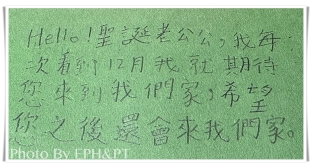 Hello!聖誕老公公,我每
次看到12月我就期待
您來到我們家,希望
你之後還會來我們家。
Photo By EPH&PT